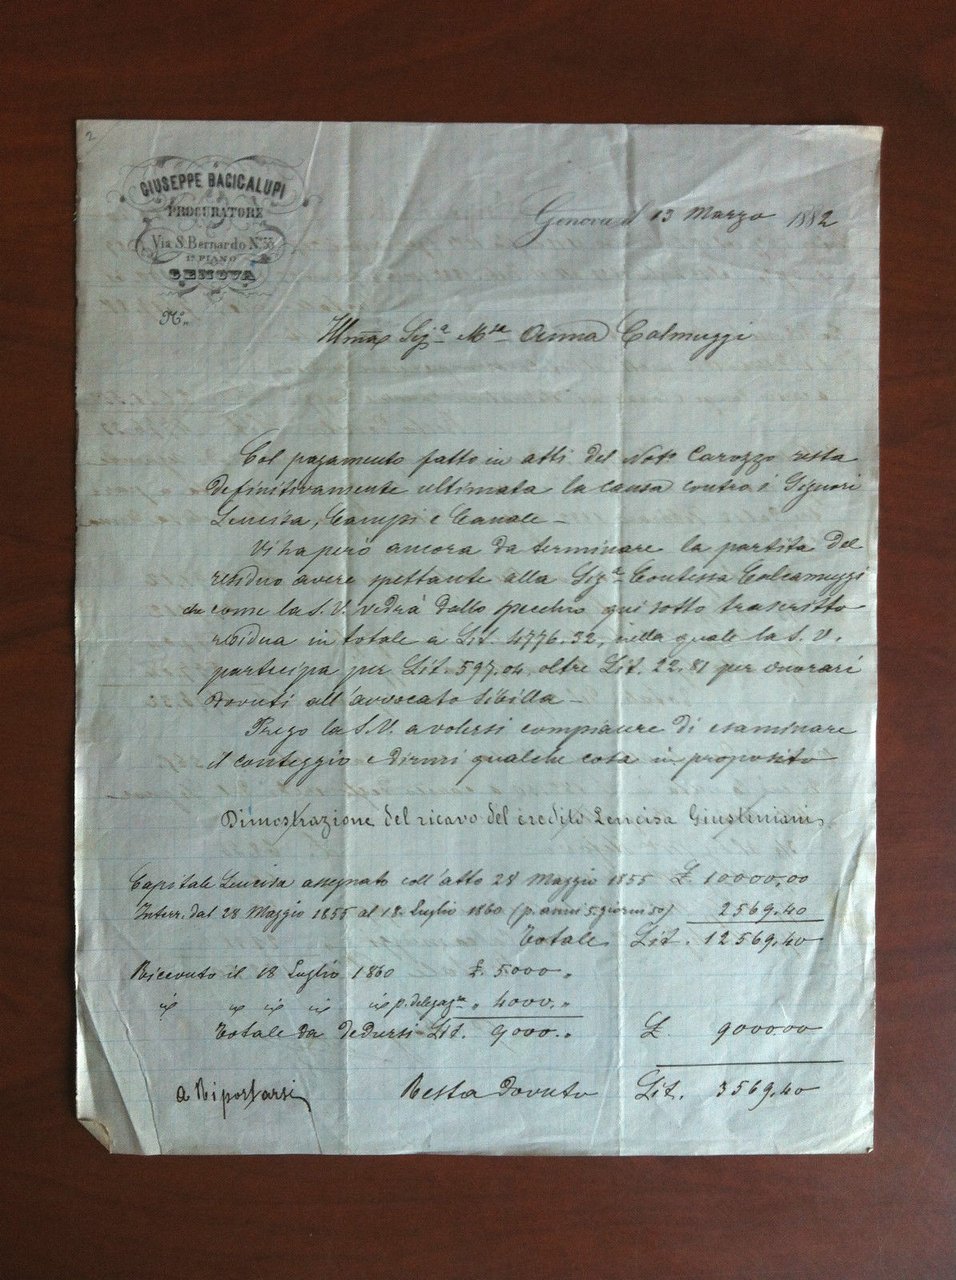 2
GIUSEPPE BACIGALUPI
PROCURATORE
Via S. Bernardo N.º 33
1º PIANO
GENOVA
Nº.
Genova il 13 Marzo 1882
Illma Sig.a M.sa Anna
Col pagamento fatto in atti del Not.º Carozzo resta
definitivamente ultimata la causa contro i Signori
Lencisa, Campi e Canale –
Vi ha però ancora da terminare la partita del
residuo avere spettante alla Sig.a Contessa Calcamuggi
che come la S. V. vedrà dallo specchio qui sotto trascritto
residua in totale a Lit. 4776.32, nella quale la S. V.
participa per Lit. 597.04, oltre Lit. 22.81 per onorari
dovuti all'avvocato Sibilla –
Prego la S. V. a volersi compiacere di esaminare
il conteggio e dirmi qualche cosa in proposito
Dimostrazione del ricavo del credito Lencisa Giustiniani,
Capitale Lencisa assegnato coll'atto 28 Maggio 1855 £. 10000,00
Inter. dal 28 Maggio 1855 al 18 Luglio 1860 (p. anni 5 giorni 50) 2569.40
Totale Lit. 12569.40
Ricevuto il 18 Luglio 1860 £. 5000 „
p. delegaz.ne „ 4000. „
Totale da dedursi Lit. 9000. „ £. 9000.00
a Riportarsi Resta dovuto Lit. 3569.40